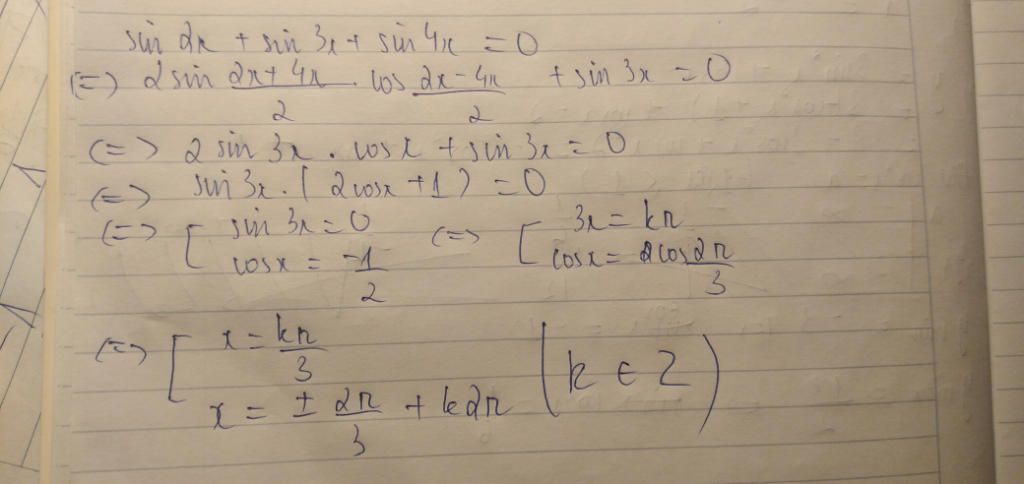 sin 2x + sin 3x + sin 4x = 0
(=) 2 sin (2x+4x)/2 . cos (2x-4x)/2 + sin 3x = 0
(=> 2 sin 3x . cos x + sin 3x = 0
(=> sin 3x . ( 2cosx +1 ) = 0
(=> [ sin 3x = 0 (=> [ 3x = kπ
cosx = -1/2 cosx = 2cos 2π/3
(=> [ x = kπ/3
x = ± 2π/3 + k2π (k ∈ Z)